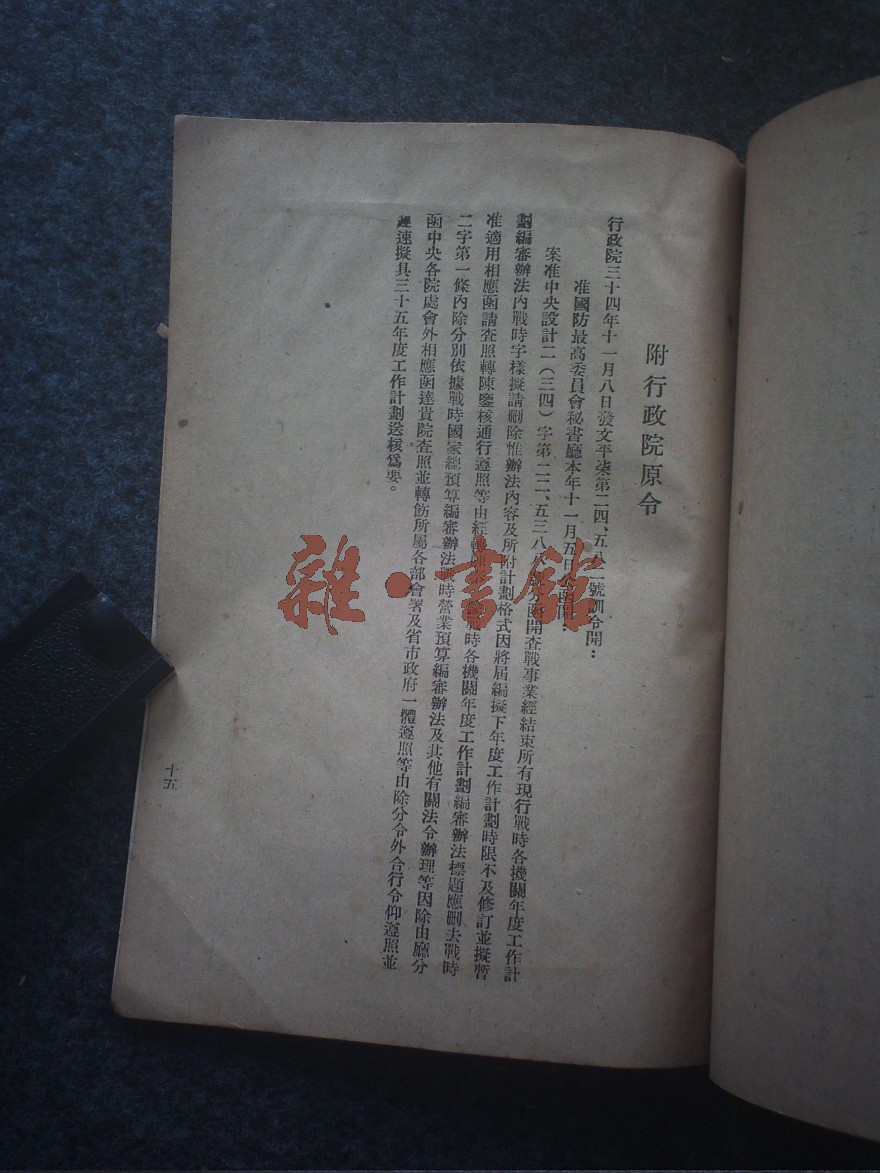 附行政院原令
行政院三十四年十一月八日發文平柒第二四、五八二號訓令開：
准國防最高委員會秘書廳本年十一月五日公函開：
案准中央設計二（三四）字第二二、五三八八號分函開查戰事業經結束所有現行戰時各機關年度工作計
劃編審辦法內戰時字樣擬請刪除惟辦法內容及所附計劃格式因將屆編擬下年度工作計劃時限不及修訂並擬暫
准適用相應函請查照轉陳鑒核通行遵照等由經轉陳戰時各機關年度工作計劃編審辦法標題應刪去戰時
二字第一條內除分別依據戰時國家總預算編審辦法戰時營業預算編審辦法及其他有關法令辦理等因除由廳分
函中央各院處會外相應函達貴院查照並轉飭所屬各部會署及省市政府一體遵照等由除分令外合行令仰遵照並
趕速擬具三十五年度工作計劃送核為要。
十五
雜·書館